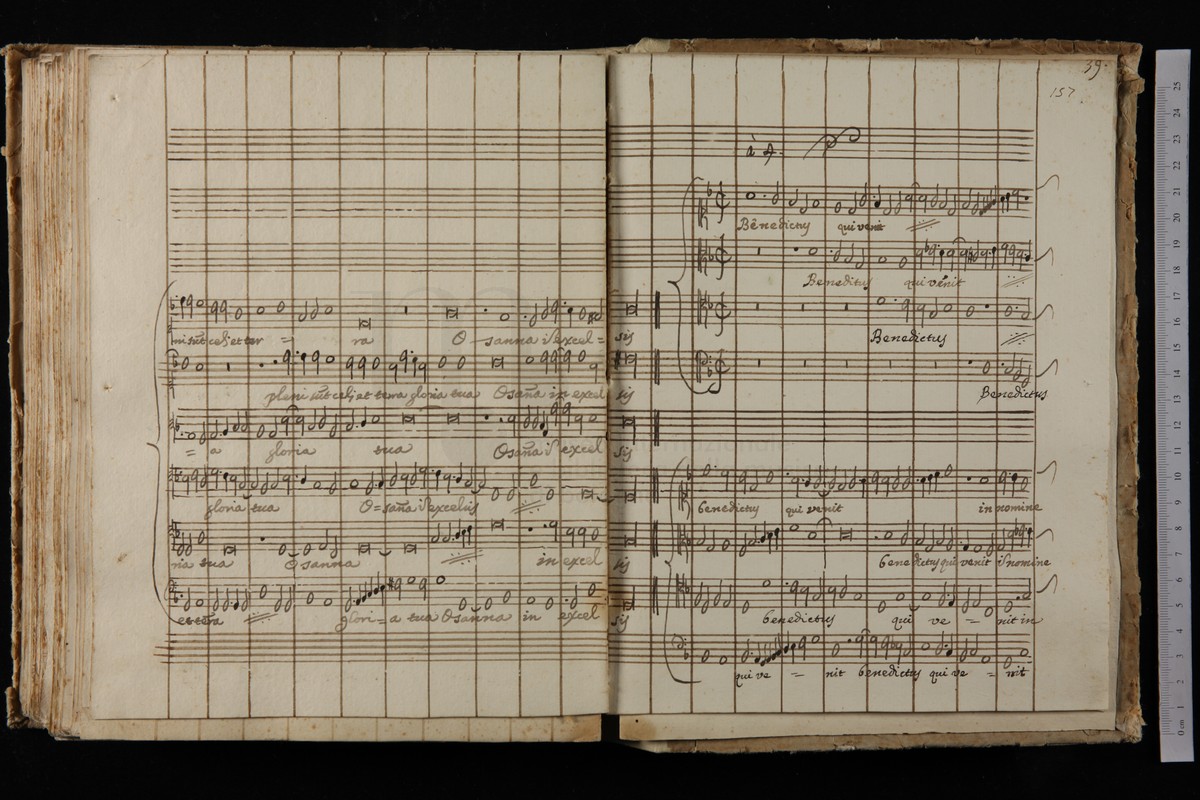 39.
157
à 4.
mi sũt celi et ter = ra O sanna ĩ excel = sis
pleni sũt celi et terra gloria tua Osaña in excel sis
= a gloria tua Osaña ĩ excel sis
gloria tua O = saña ĩ excelsis
ria tua Osanna in excel sis
et terra glori = a tua Osanna in excel sis
Benedictus qui venit
Beneditus qui venit
Benedictus
Benedictus
benedictus qui venit in nomine
benedictus qui venit ĩ nomine
benedictus qui ve = nit in
qui ve = nit benedictus qui ve = nit